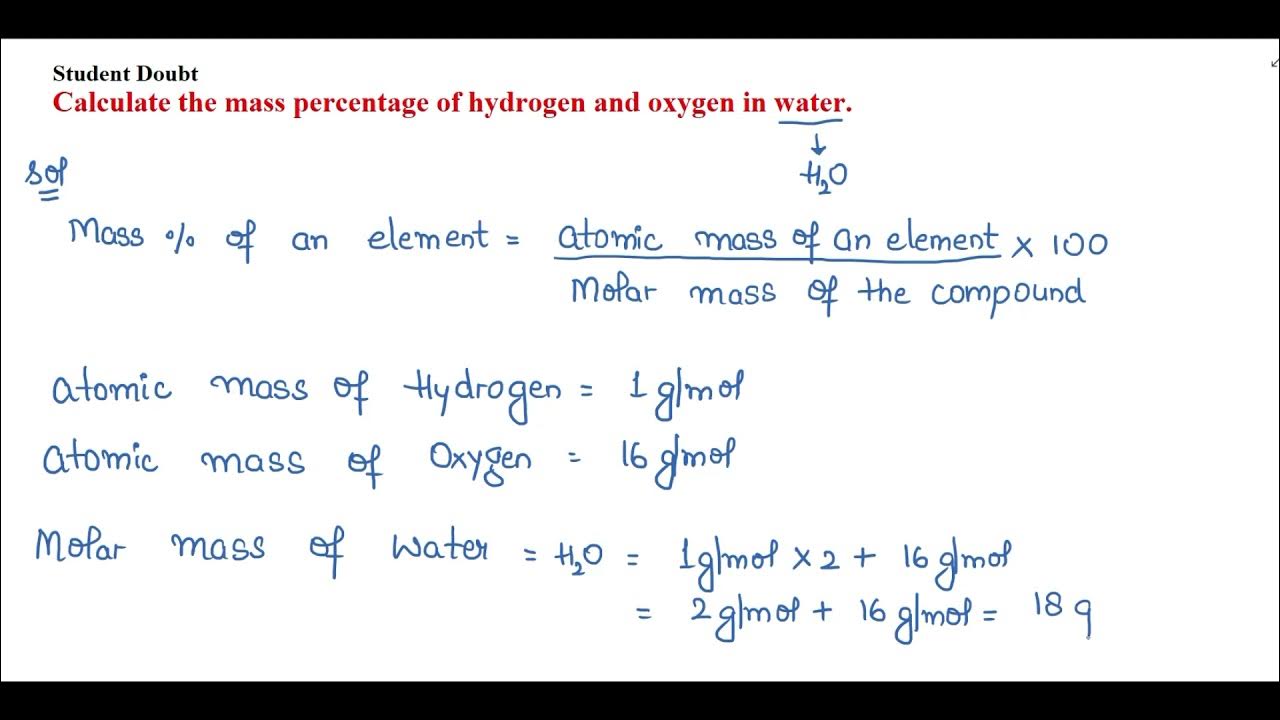 Student Doubt
Calculate the mass percentage of hydrogen and oxygen in water.
H₂O
Sol
Mass % of an element = atomic mass of an element × 100
Molar mass of the compound
atomic mass of Hydrogen = 1 g/mol
atomic mass of Oxygen = 16 g/mol
Molar mass of water = H₂O = 1 g/mol × 2 + 16 g/mol
= 2 g/mol + 16 g/mol = 18 g